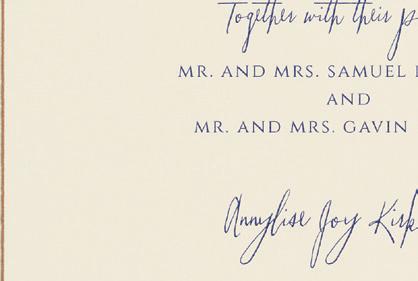 Together with their p
MR. AND MRS. SAMUEL
AND
MR. AND MRS. GAVIN
Annylise Joy Kirk